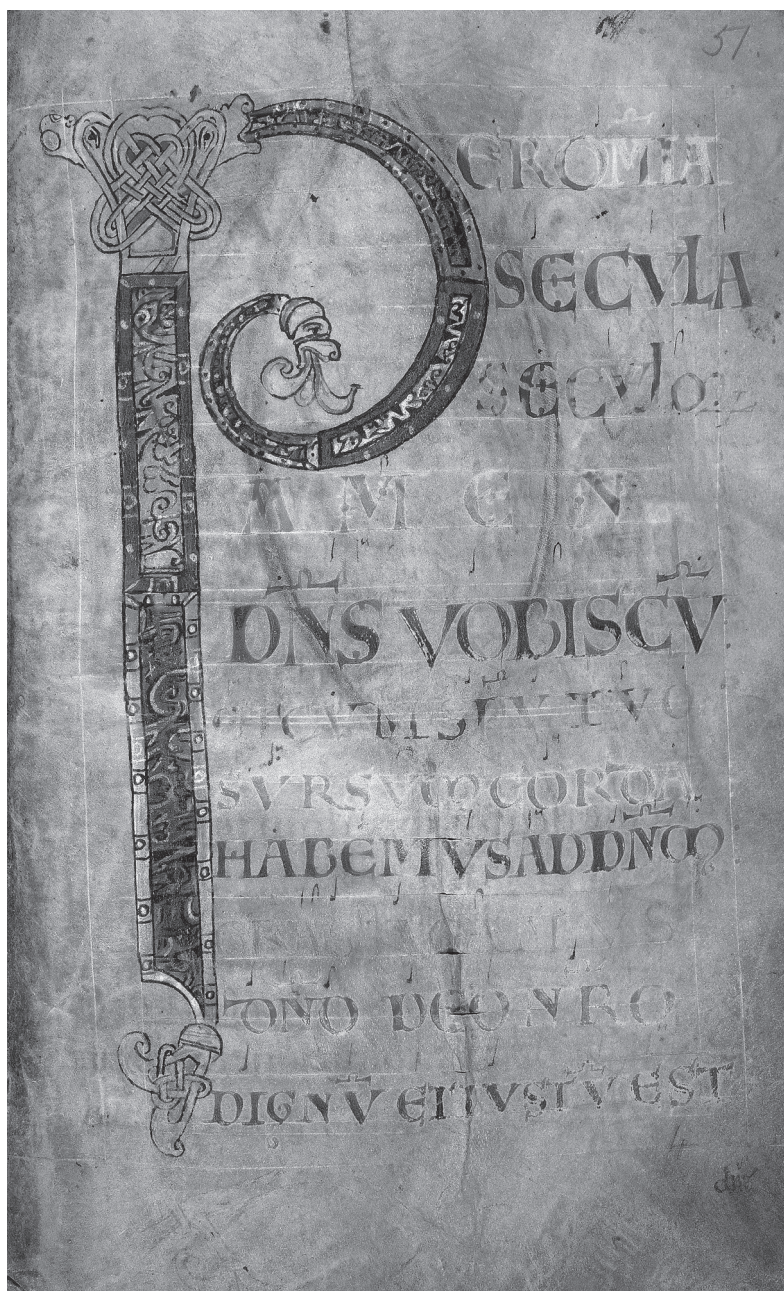 57
PEROMIA
SECVLA
SECVLO
AMEN
DNS VOBISCV
ETCVM SPV TVO
SVRSVM CORDA
HABEMVS AD DNM
DNO DEO NRO
DIGNV ETIVSTV EST